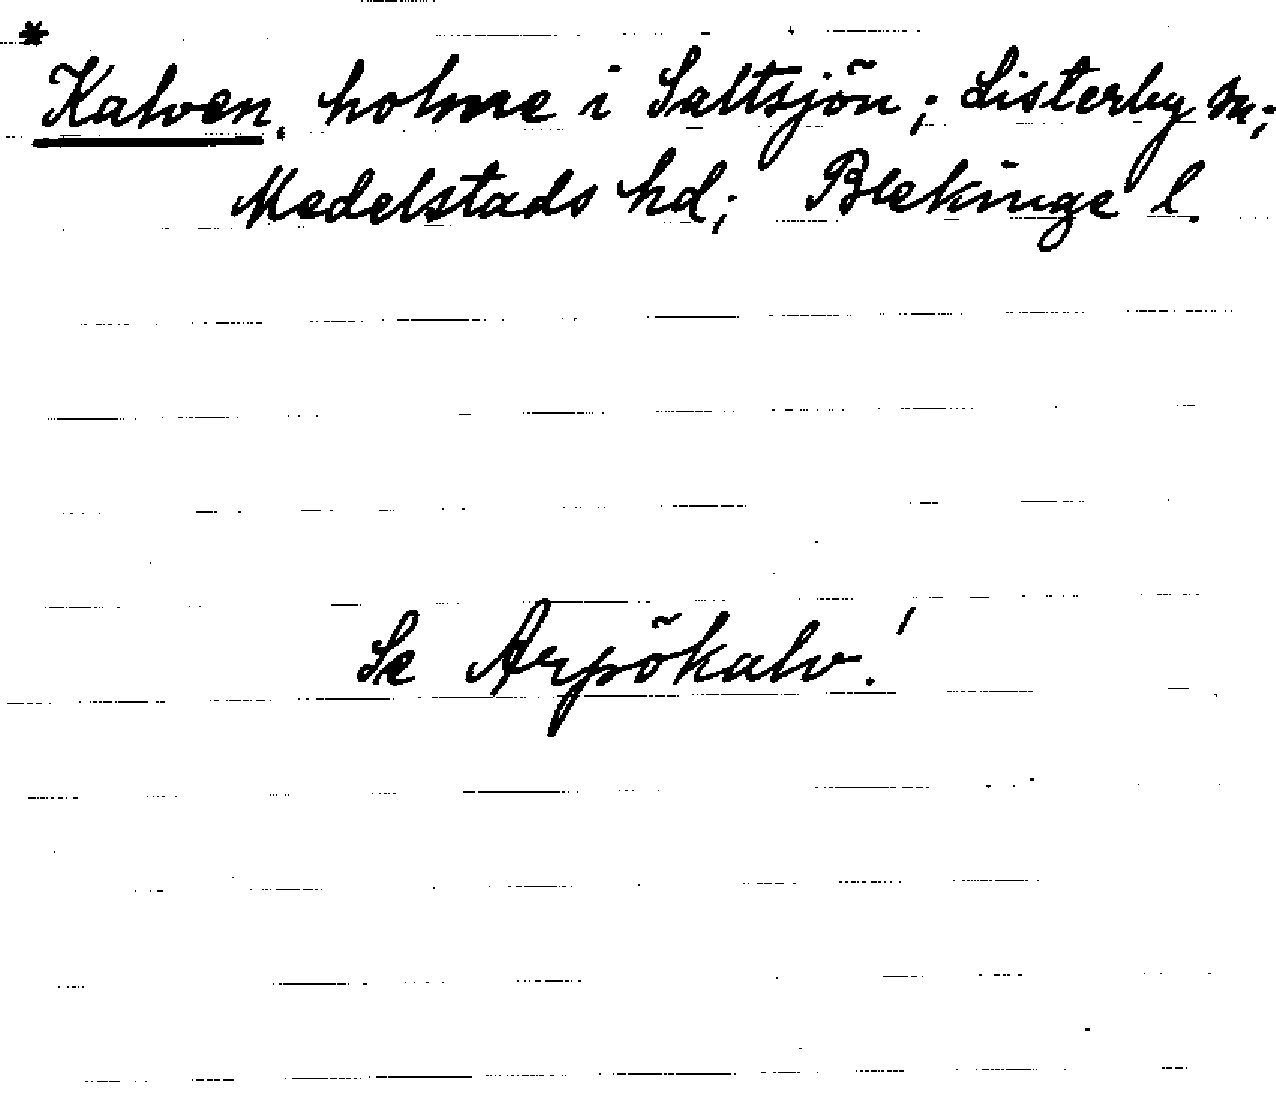 * Kalven, holme i Saltsjön; Listerby sn;
Medelstads hd; Blekinge l.
Se Arpökalv!